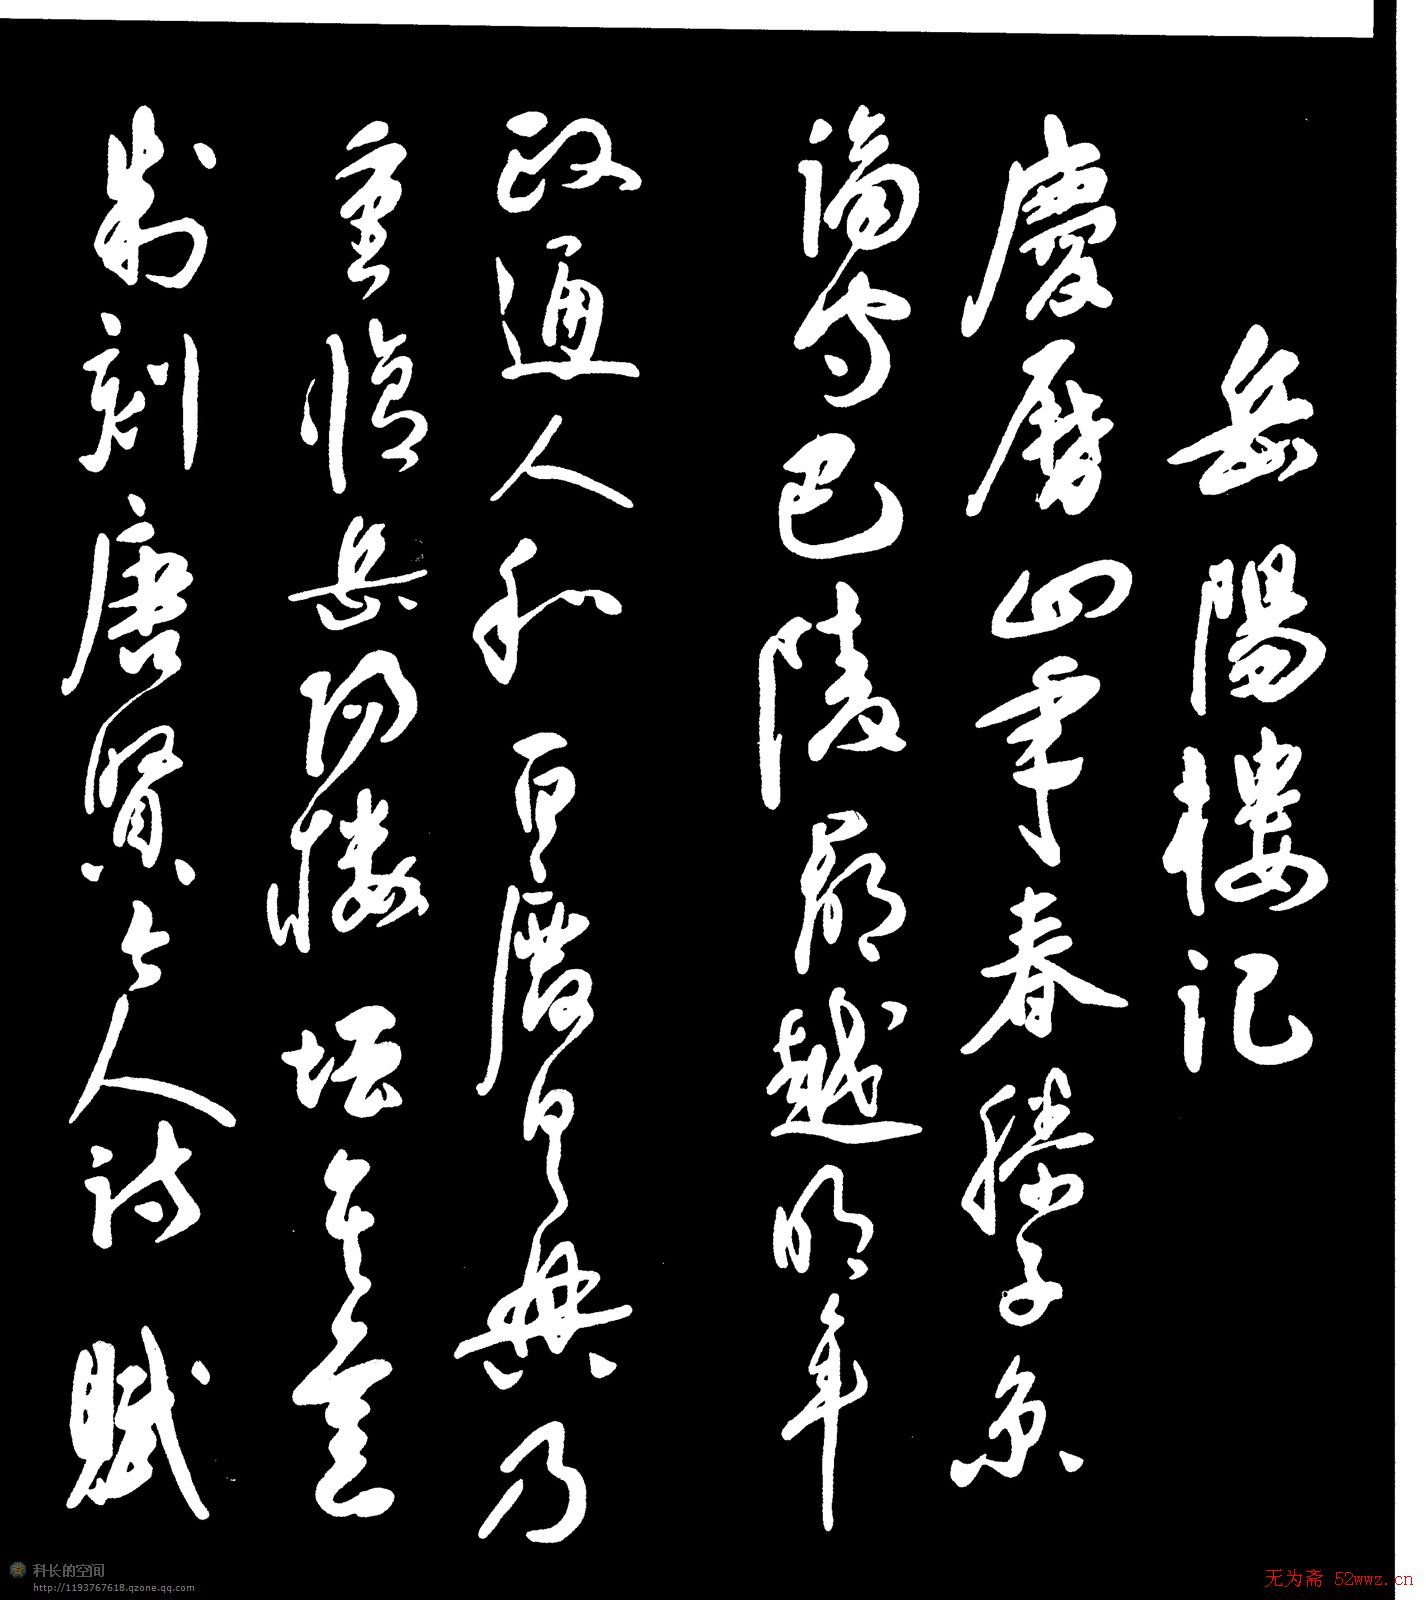 岳陽樓記
慶曆四年春滕子京
謫守巴陵郡越明年
政通人和百廢具興乃
重脩岳陽樓增其舊
制刻唐賢今人詩賦
科长的空间
http://1193767618.qzone.qq.com
无为斋 52wwz.cn